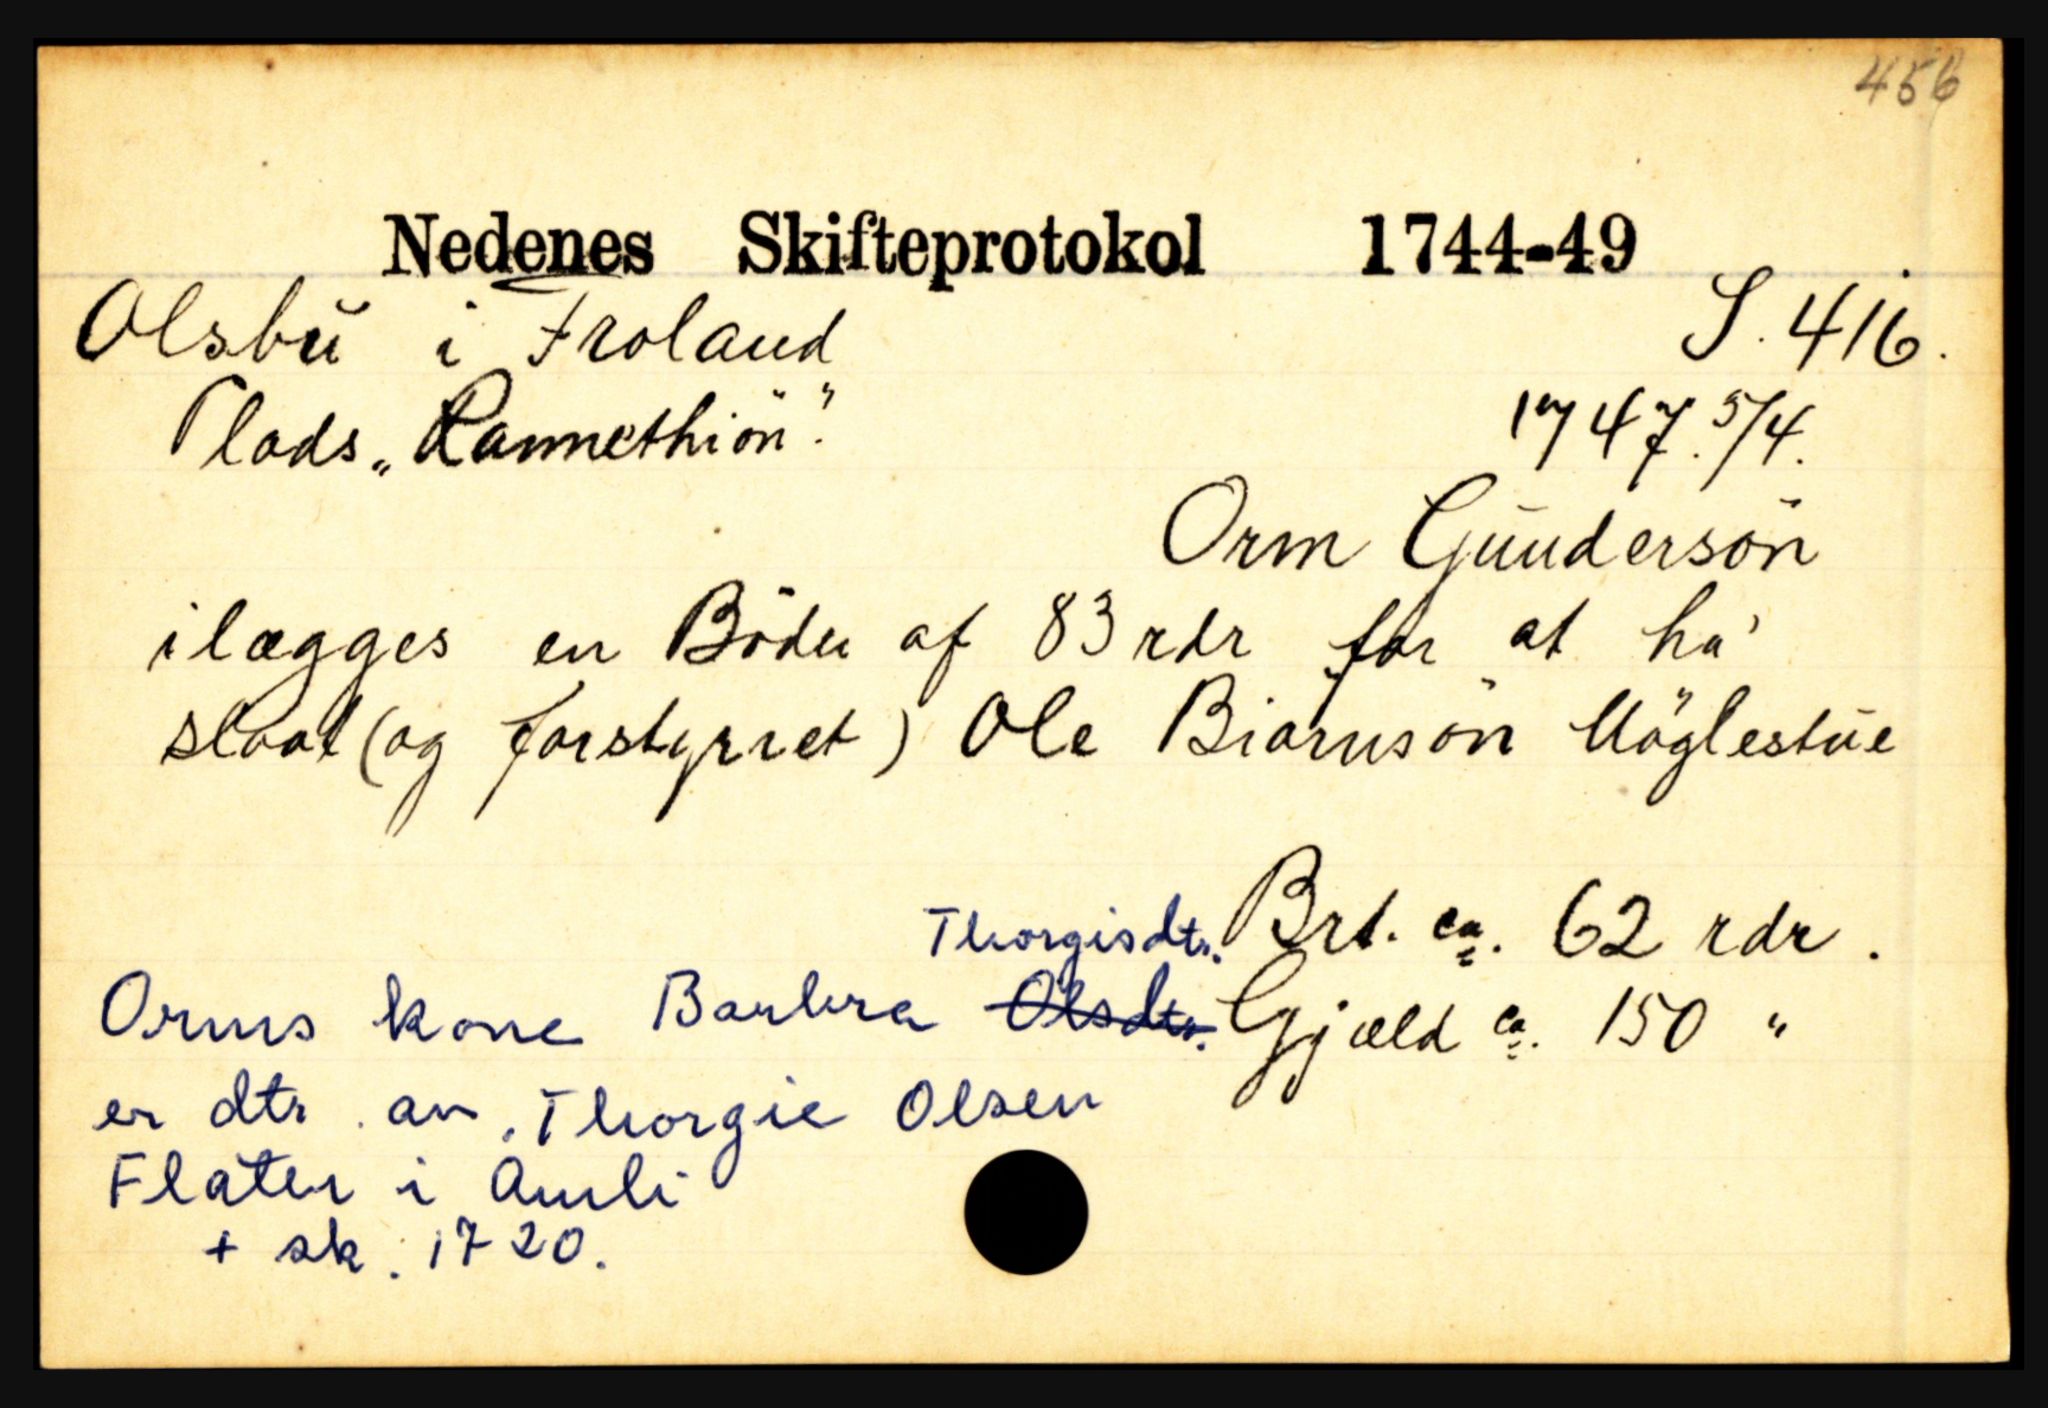 456
Nedenes Skifteprotokol 1744-49
Olsbu i Froland S. 416.
Plads „Rannethiön". 1747. 5/4.
Orm Gundersön
ilægges en Böder af 83 rdr for at ha'
slaat (og forstyrret) Ole Biörnsön Möglestue
Thorgisdtr. Brt. ca. 62 rdr.
Orms kone Barbra Olsdtr. Gjæld ca. 150 "
er dtr. av Thorgie Olsen
Flaten i Amli
+ sk. 1720.